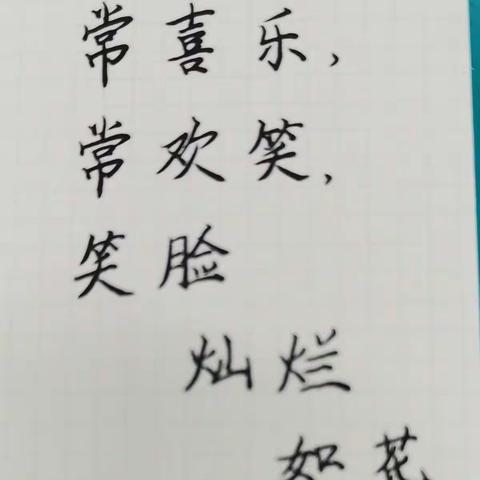 常喜乐,
常欢笑,
笑脸
灿烂
如花